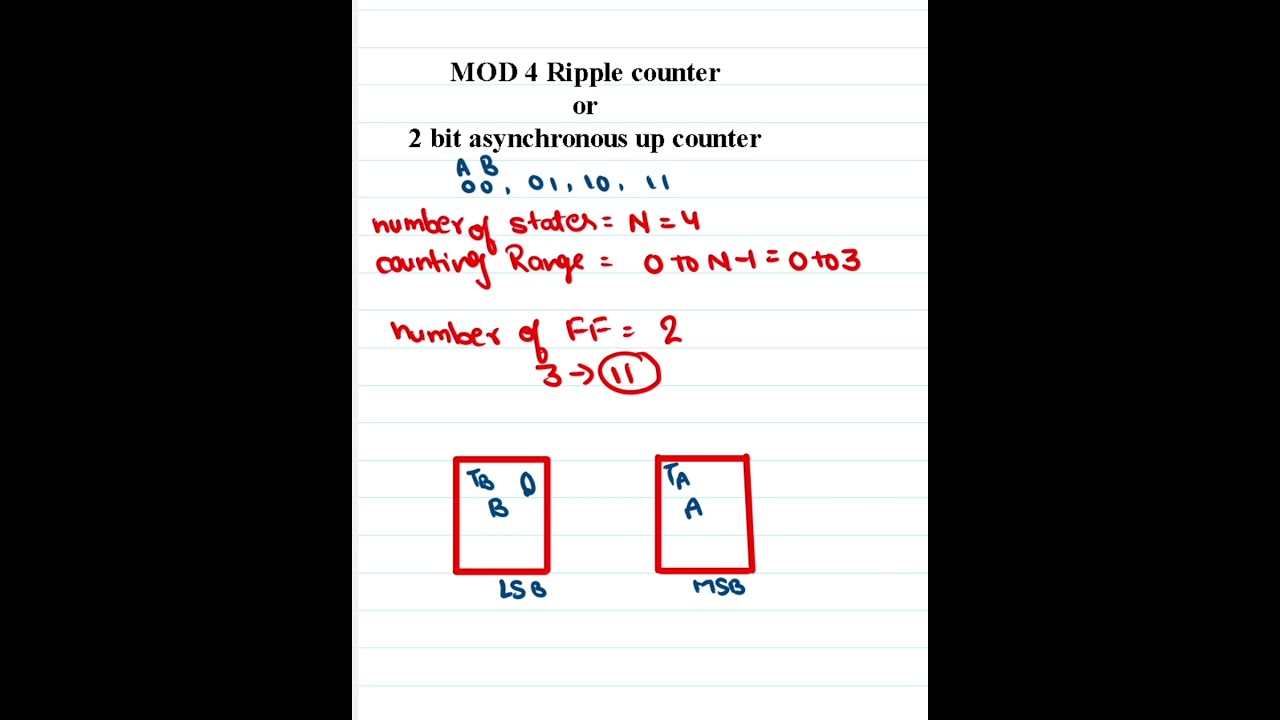 MOD 4 Ripple counter
or
2 bit asynchronous up counter
A B
00, 01, 10, 11
number of states = N = 4
counting Range = 0 to N-1 = 0 to 3
number of FF = 2
3 → 11
TB Q TA
B A
LSB MSB